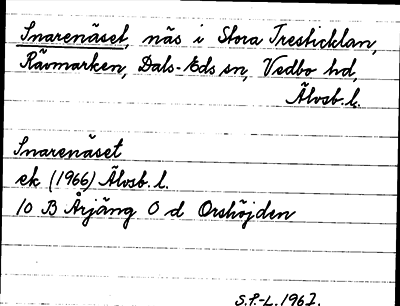 Snarenäset, näs i Stora Tresticklan,
Rävmarken, Dals-Eds sn, Vedbo hd,
Älvsb. l.
Snarenäset
ek (1966) Älvsb. l.
10 B Årjäng O d Orshöjden
S.P.-L. 1967.